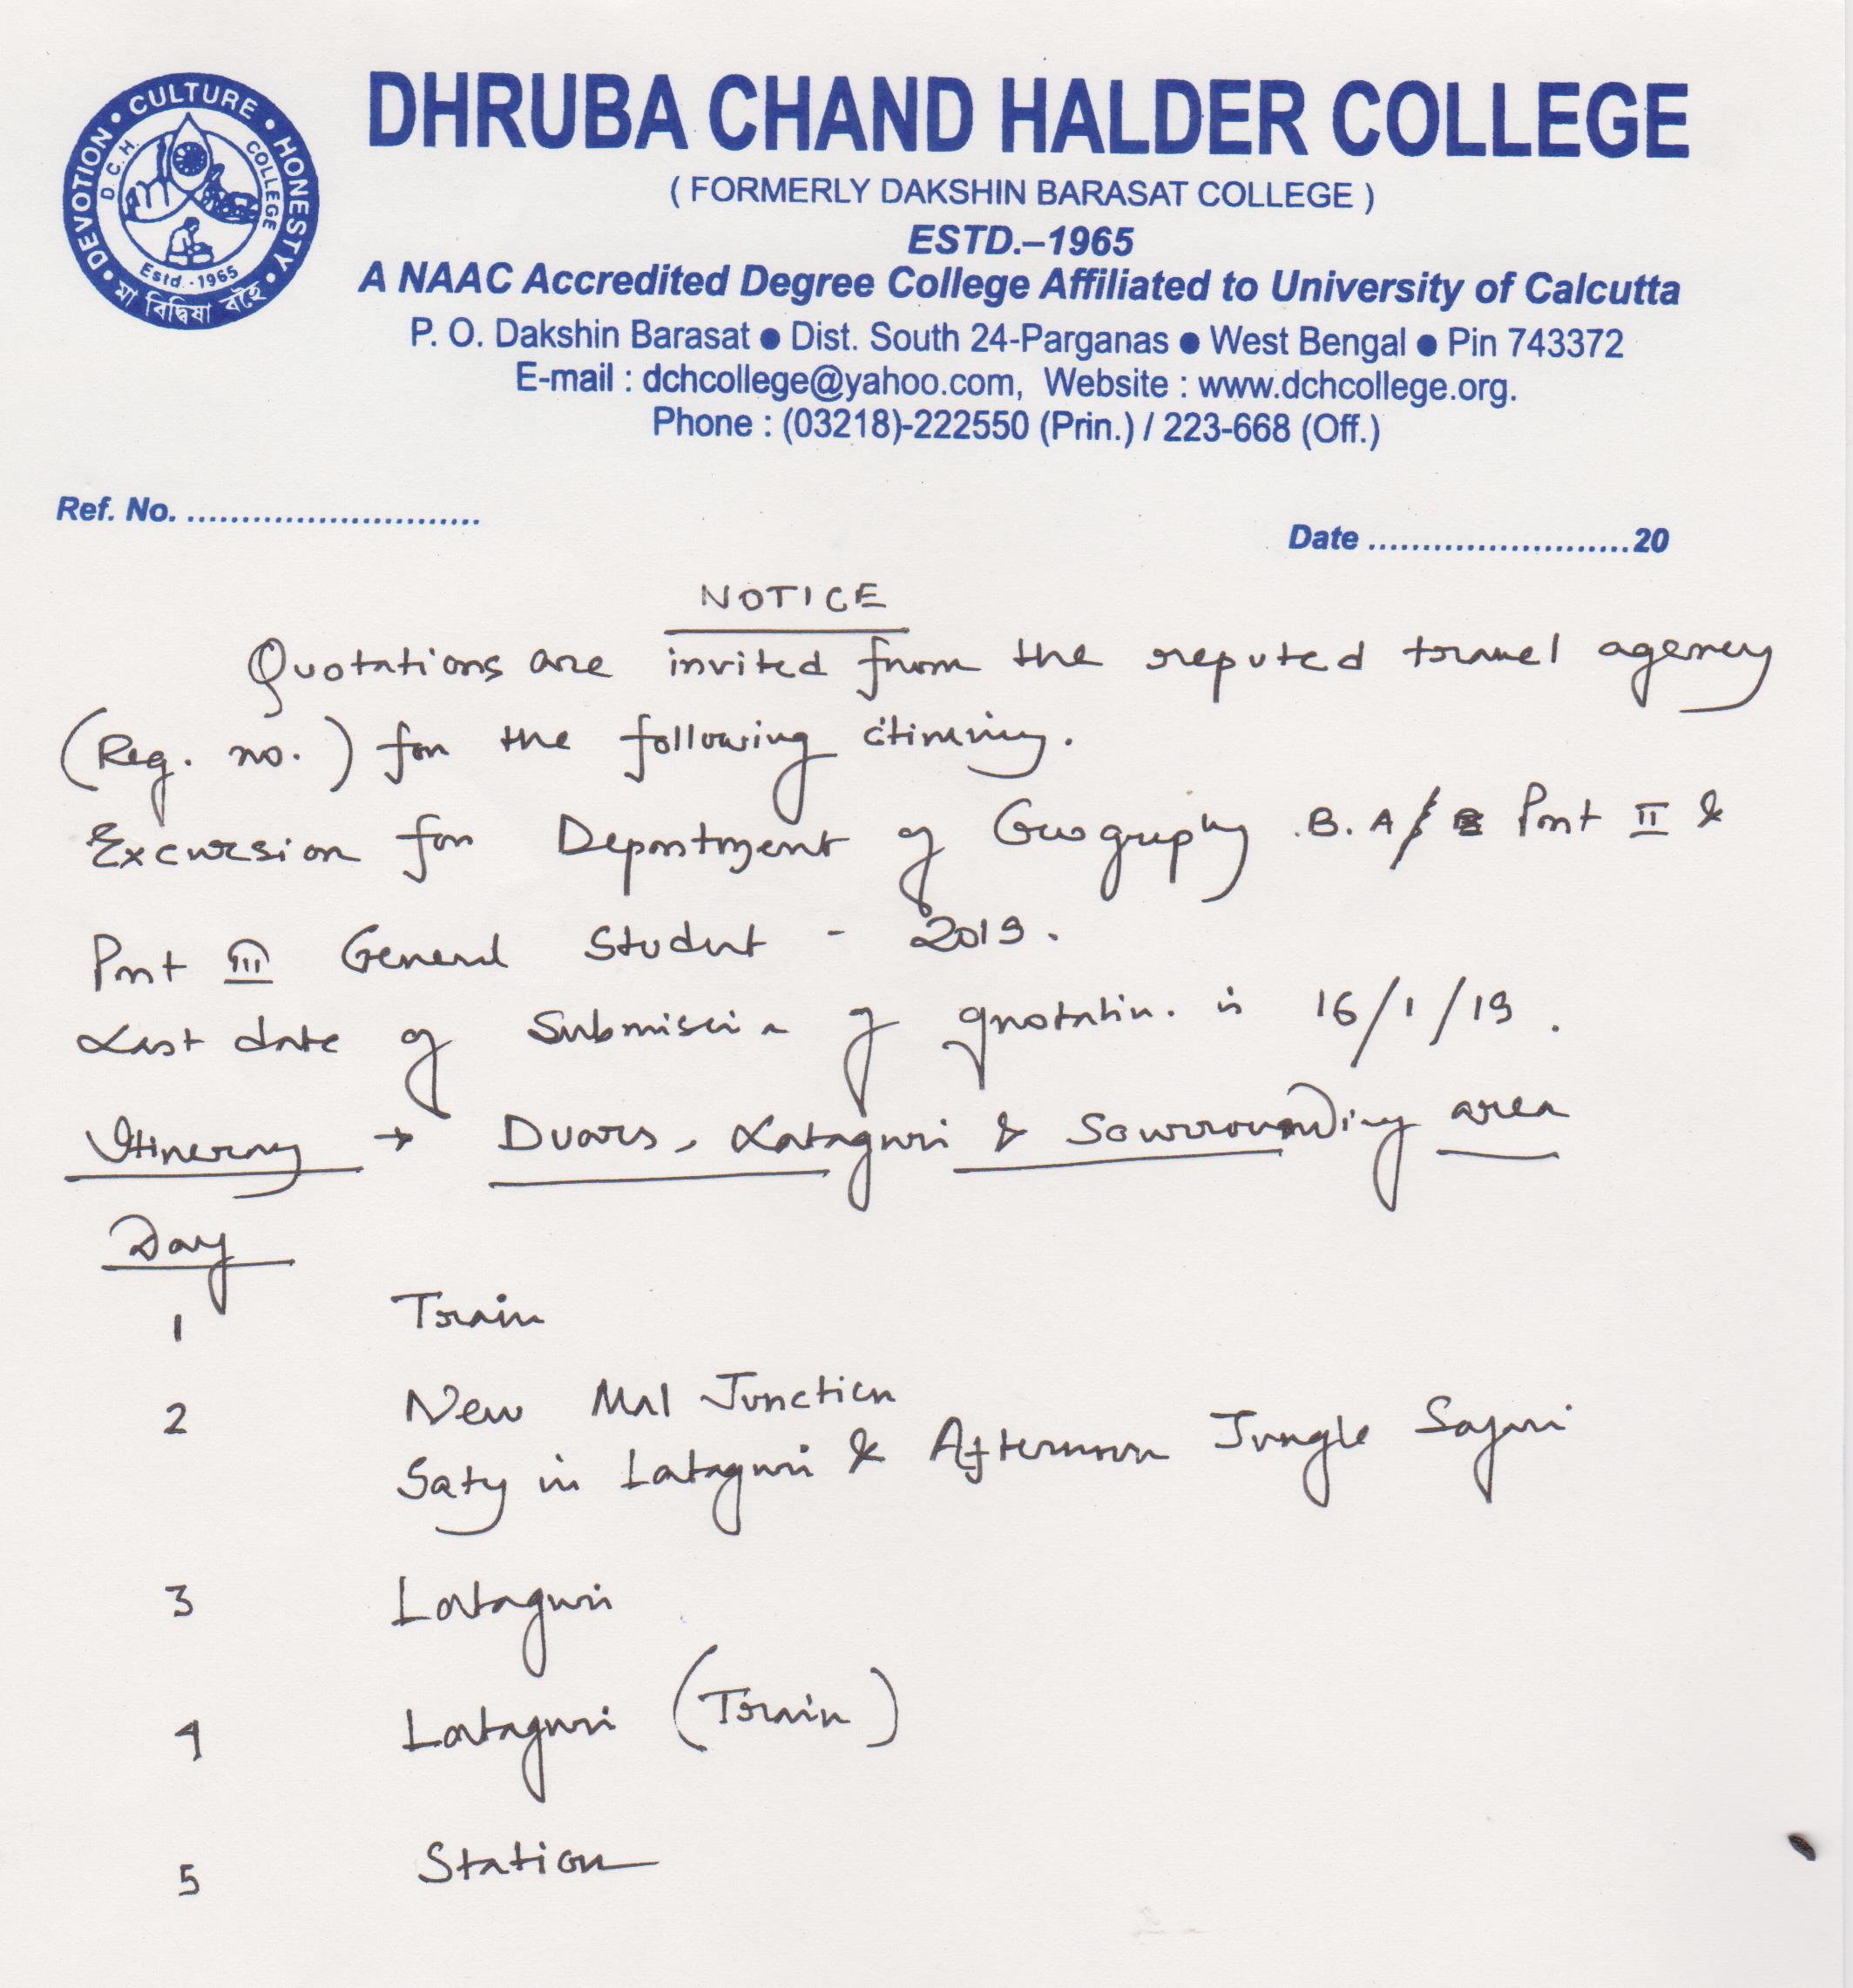 DEVOTION • CULTURE • HONESTY
D.C.H. COLLEGE
Estd.-1965
মা বিদ্বিষা বহৈ
DHRUBA CHAND HALDER COLLEGE
( FORMERLY DAKSHIN BARASAT COLLEGE )
ESTD.–1965
A NAAC Accredited Degree College Affiliated to University of Calcutta
P. O. Dakshin Barasat ● Dist. South 24-Parganas ● West Bengal ● Pin 743372
E-mail : dchcollege@yahoo.com, Website : www.dchcollege.org.
Phone : (03218)-222550 (Prin.) / 223-668 (Off.)
Ref. No. ...........................
Date ........................20
NOTICE
Quotations are invited from the reputed travel agency
(Reg. no.) for the following itinerary.
Excursion for Department of Geography B.A Part II &
Part III General Student - 2019.
Last date of Submission of quotation. is 16/1/19.
Itinerary → Duars, Lataguri & Sourrounding area
Day
1 Train
2 New Mal Junction
Saty in Lataguri & Afternoon Jungle Safari
3 Lataguri
4 Lataguri (Train)
5 Station